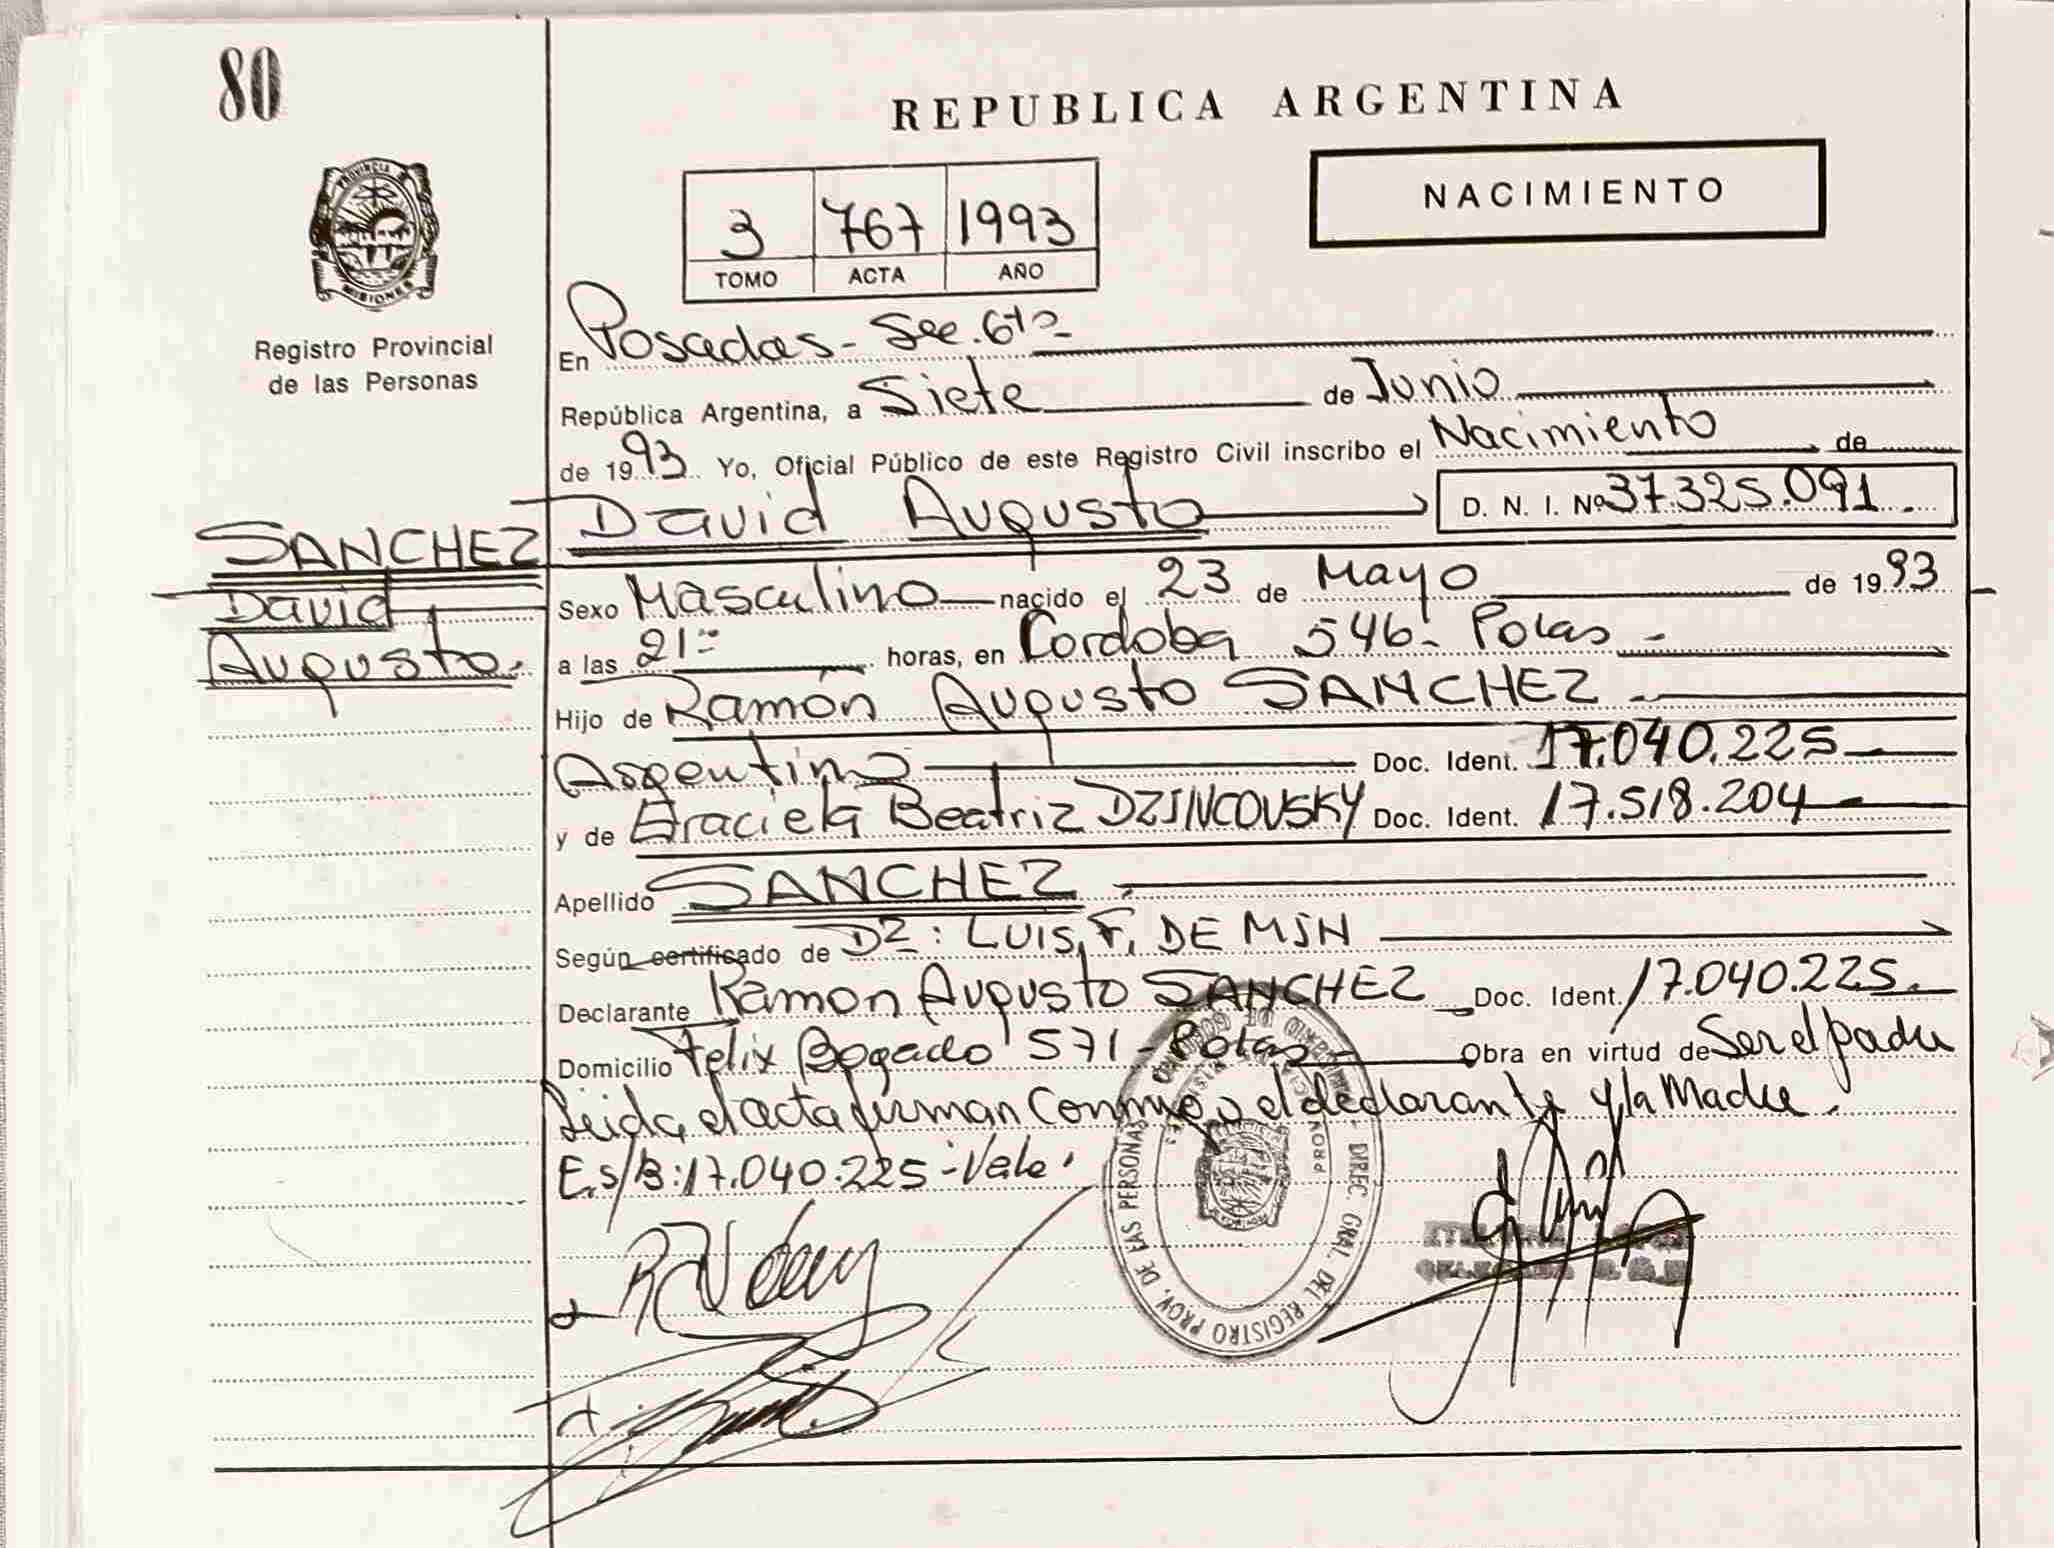 80
REPUBLICA ARGENTINA
NACIMIENTO
3 767 1993
TOMO ACTA AÑO
PROVINCIA DE
MISIONES
Registro Provincial
de las Personas
En Posadas - Sec. 6ta -
República Argentina, a Siete de Junio
de 1993 Yo, Oficial Público de este Registro Civil inscribo el Nacimiento de
David Augusto D. N. I. Nº 37.325.091.
SANCHEZ
David
Augusto.
Sexo Masculino nacido el 23 de Mayo de 1993
a las 21 horas, en Cordoba 546 - Pdas -
Hijo de Ramón Augusto SANCHEZ -
Argentino Doc. Ident. 17.040.225
y de Graciela Beatriz DZINCOVSKY Doc. Ident. 17.518.204
Apellido SANCHEZ -
Según certificado de Dz: LUIS, F, DE MSN
Declarante Ramon Augusto SANCHEZ Doc. Ident. 17.040.225.
Domicilio Felix Bogado 571 - Pdas - Obra en virtud de Ser el padre
Leida el acta firman Conmigo el declarante y la Madre.
E.s/B: 17.040.225 - Vale.
DIREC. GRAL. DEL REGISTRO PROV. DE LAS PERSONAS